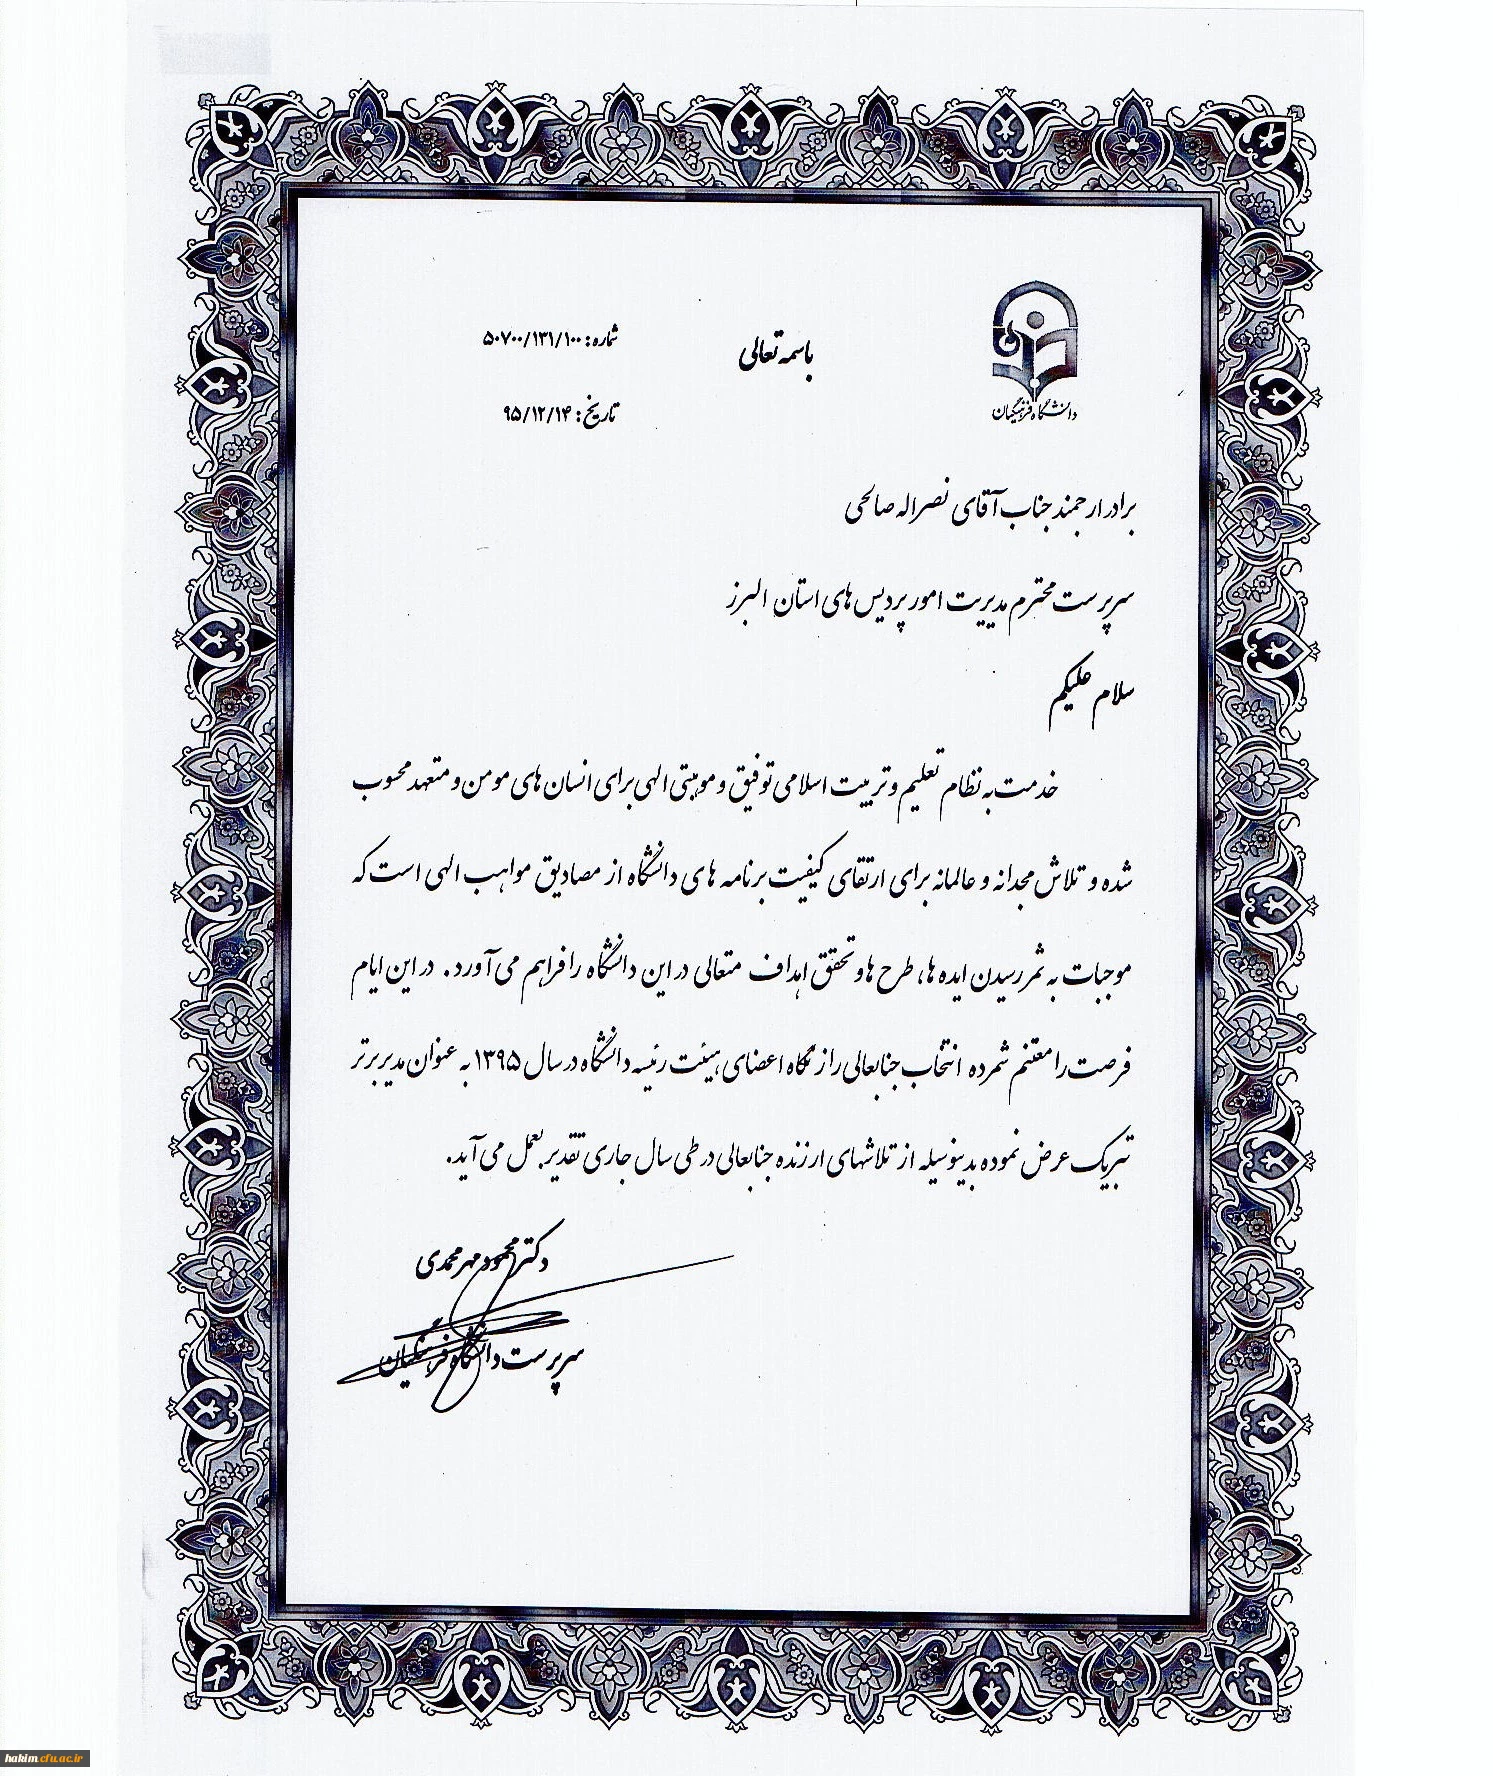 باسمه تعالی
شماره: ۵۰۷۰۰/۱۳۱/۱۰۰
تاریخ: ۹۵/۱۲/۱۴
دانشگاه فرهنگیان
برادر ارجمند جناب آقای نصراله صالحی
سرپرست محترم مدیریت امور پردیس های استان البرز
سلام علیکم
خدمت به نظام تعلیم و تربیت اسلامی توفیق و موهبتی الهی برای انسان های مومن و متعهد محسوب
شده و تلاش مجدانه و عالمانه برای ارتقای کیفیت برنامه های دانشگاه از مصادیق مواهب الهی است که
موجبات به ثمر رسیدن ایده ها، طرح ها و تحقق اهداف متعالی در این دانشگاه را فراهم می آورد. در این ایام
فرصت را مغتنم شمرده انتخاب جنابعالی را از نگاه اعضای هیئت رئیسه دانشگاه در سال ۱۳۹۵ به عنوان مدیر برتر
تبریک عرض نموده بدینوسیله از تلاشهای ارزنده جنابعالی در طی سال جاری تقدیر بعمل می آید.
دکتر محمود مهرمحمدی
سرپرست دانشگاه فرهنگیان
hakim.cfu.ac.ir